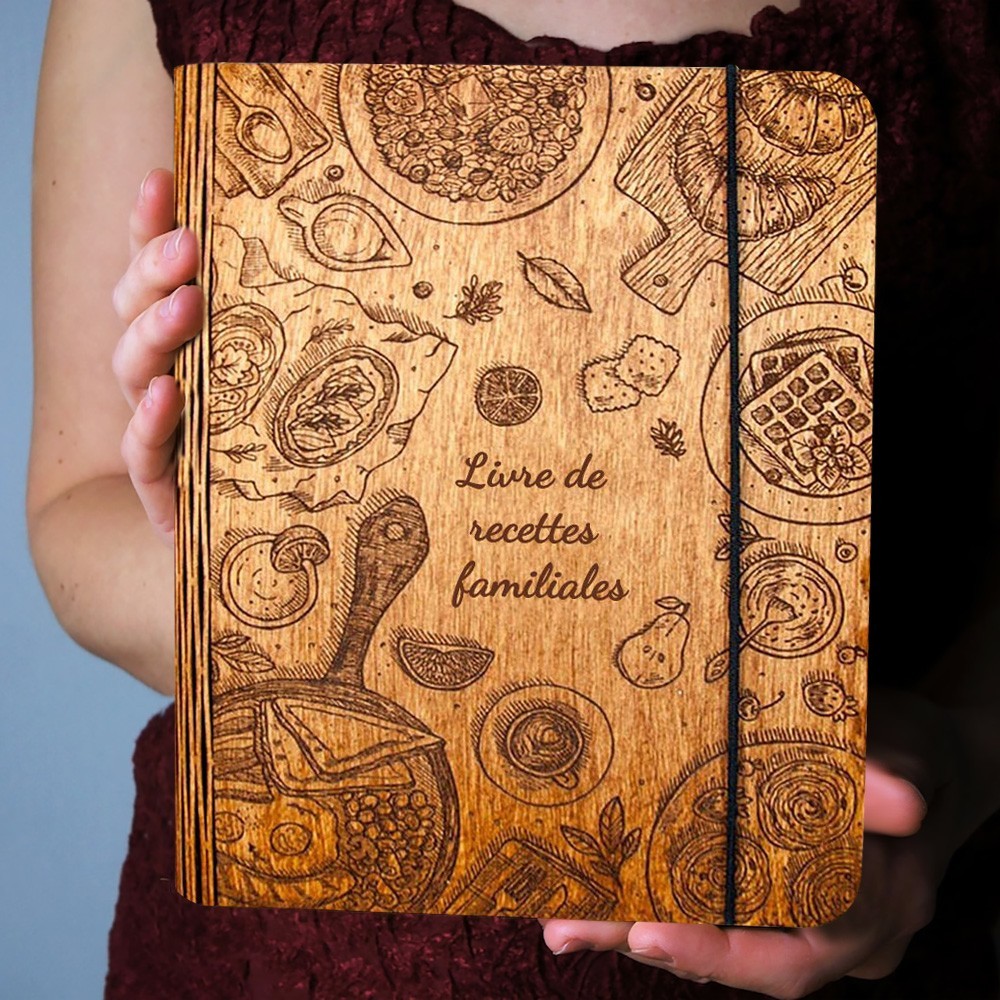 Livre de
recettes
familiales